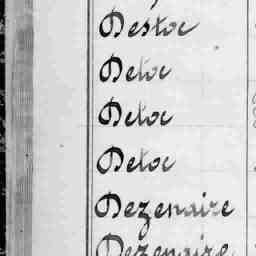 Destoc
Detoc
Detoc
Detoc
Dezenaire
Dezenaire